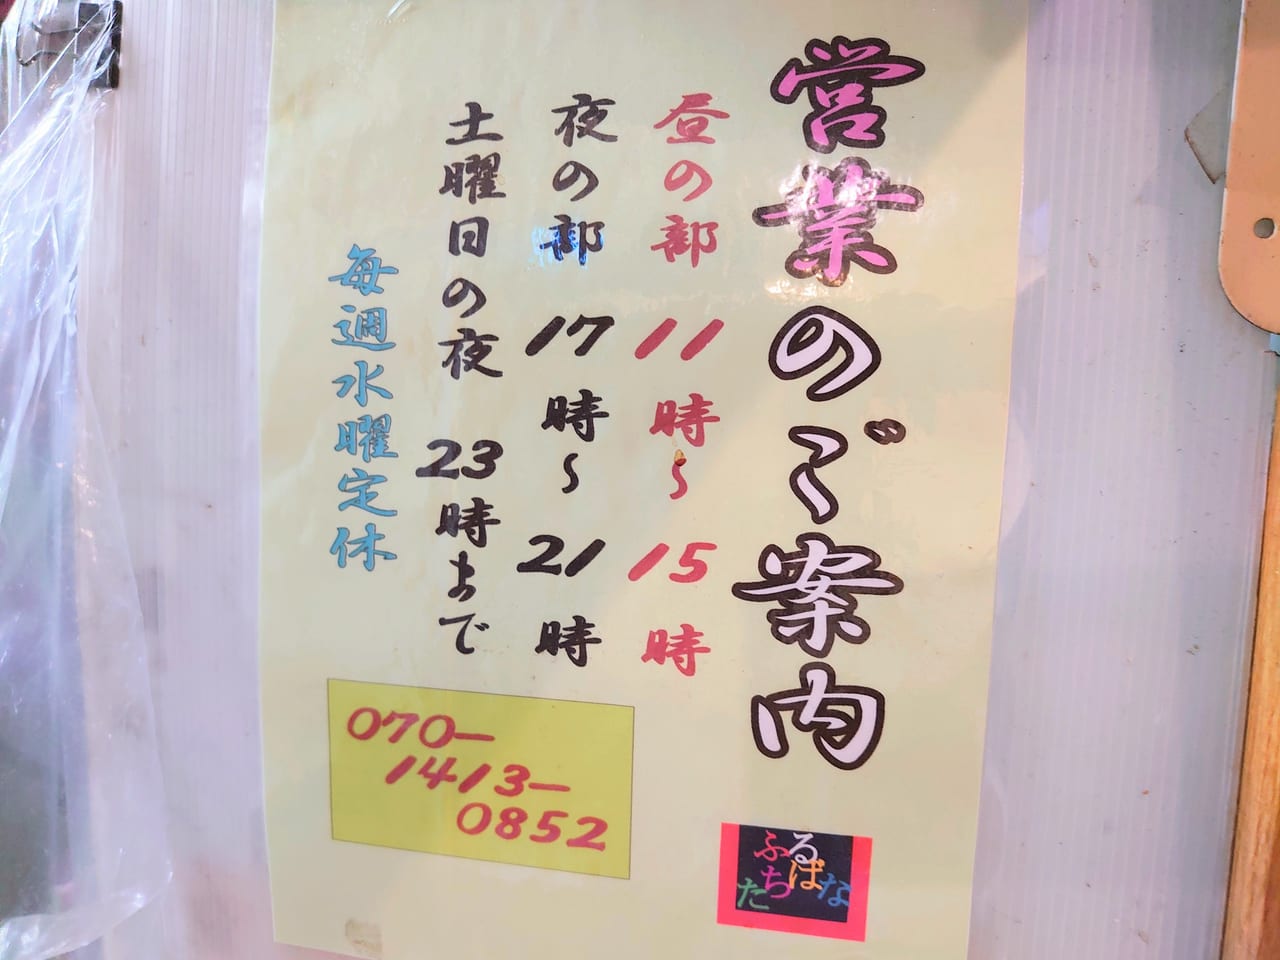 営業のご案内
昼の部 11時～15時
夜の部 17時～21時
土曜日の夜 23時まで
毎週水曜定休
070-
1413-
0852
ふる
たちばな